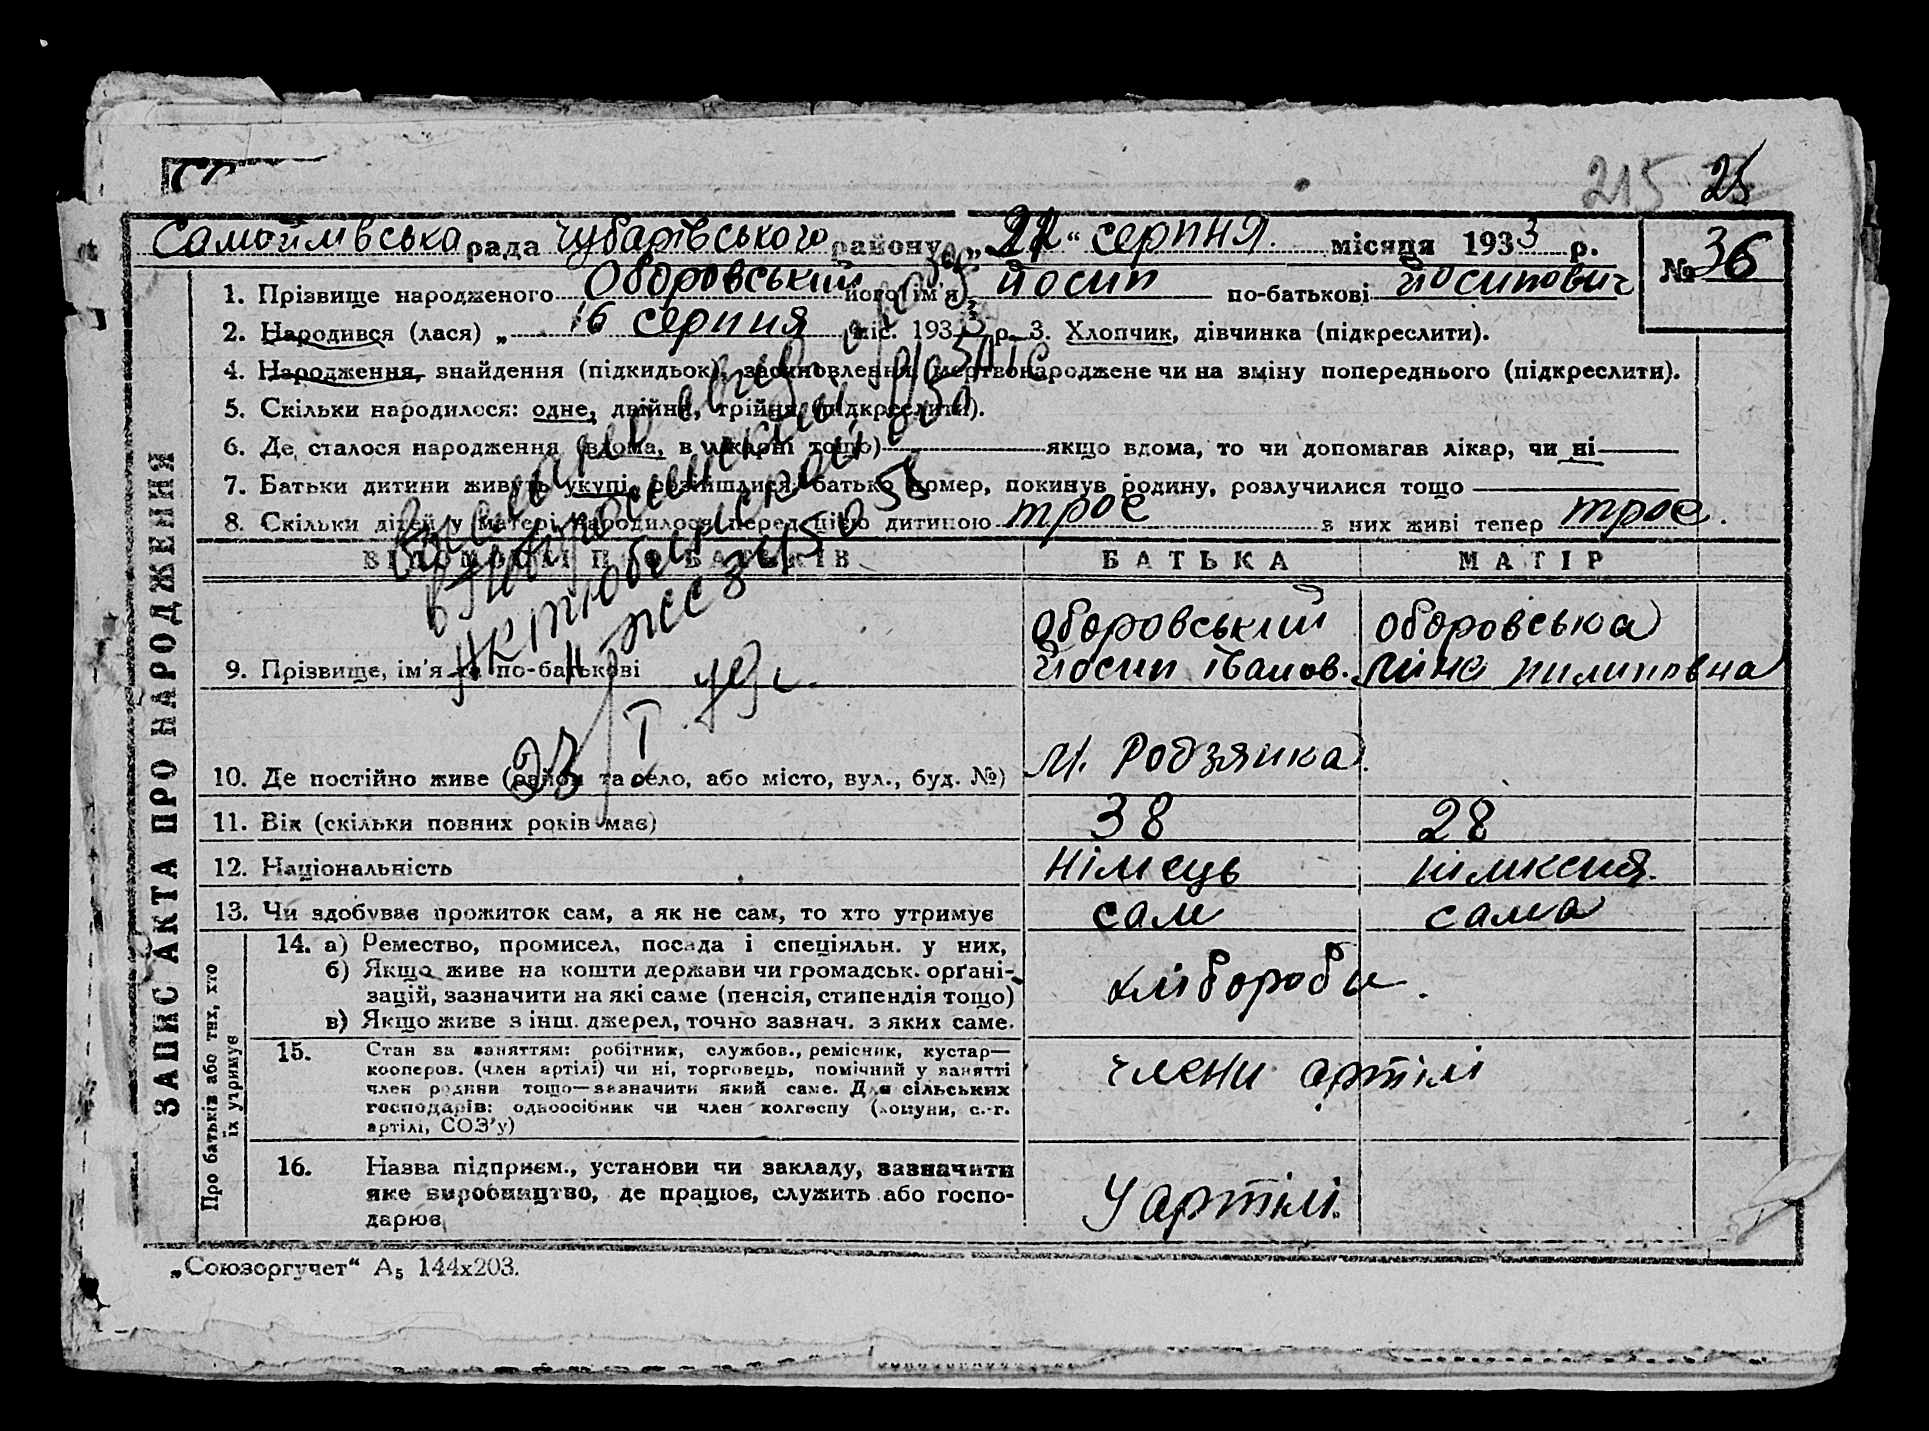 215 25
Самойлівська рада Чубарівського району „22“ серпня місяця 1933 р.
№ 36
1. Прізвище народженого Оборовський його ім'я Йосип по-батькові Йосипович
2. Народився (лася) „ 16 серпня міс. 1933 р. 3. Хлопчик, дівчинка (підкреслити).
4. Народження, знайдення (підкидьок), засиновлення, мертвонароджене чи на зміну попереднього (підкреслити).
5. Скільки народилося: одне, двійня, трійня (підкреслити).
6. Де сталося народження (вдома, в лікарні тощо) якщо вдома, то чи допомагав лікар, чи ні
7. Батьки дитини живуть укупі, розійшлися, батько помер, покинув родину, розлучилися тощо
8. Скільки дітей у матері народилося перед цією дитиною троє з них живі тепер троє.
ВІДОМОСТІ ПРО БАТЬКІВ БАТЬКА МАТІР
Оборовський Оборовська
9. Прізвище, ім'я та по-батькові Йосип Іванов. Ліна Пилиповна
10. Де постійно живе (район та село, або місто, вул., буд. №) М. Родзянка
11. Вік (скільки повних років має) 38 28
12. Національність Німець німкеня.
13. Чи здобуває прожиток сам, а як не сам, то хто утримує сам сама
14. а) Ремество, промисел, посада і спеціяльн. у них,
б) Якщо живе на кошти держави чи громадськ. орґані-
зацій, зазначити на які саме (пенсія, стипендія тощо) хлібороби.
в) Якщо живе з інш. джерел, точно зазнач. з яких саме.
15. Стан за заняттям: робітник, службов., ремісник, кустар—
кооперов. (член артілі) чи ні, торговець, помічний у занятті члени артілі
член родини тощо—зазначити який саме. Для сільських
господарів: одноосібник чи член колгоспу (комуни, с.-г.
артілі, СОЗ'у)
16. Назва підприєм., установи чи закладу, зазначити
яке виробництво, де працює, служить або госпо- У артілі.
дарює
ЗАПИС АКТА ПРО НАРОДЖЕННЯ
Про батьків або тих, хто
їх утримує
23/I 49 г.
„Союзоргучет“ А5 144х203.